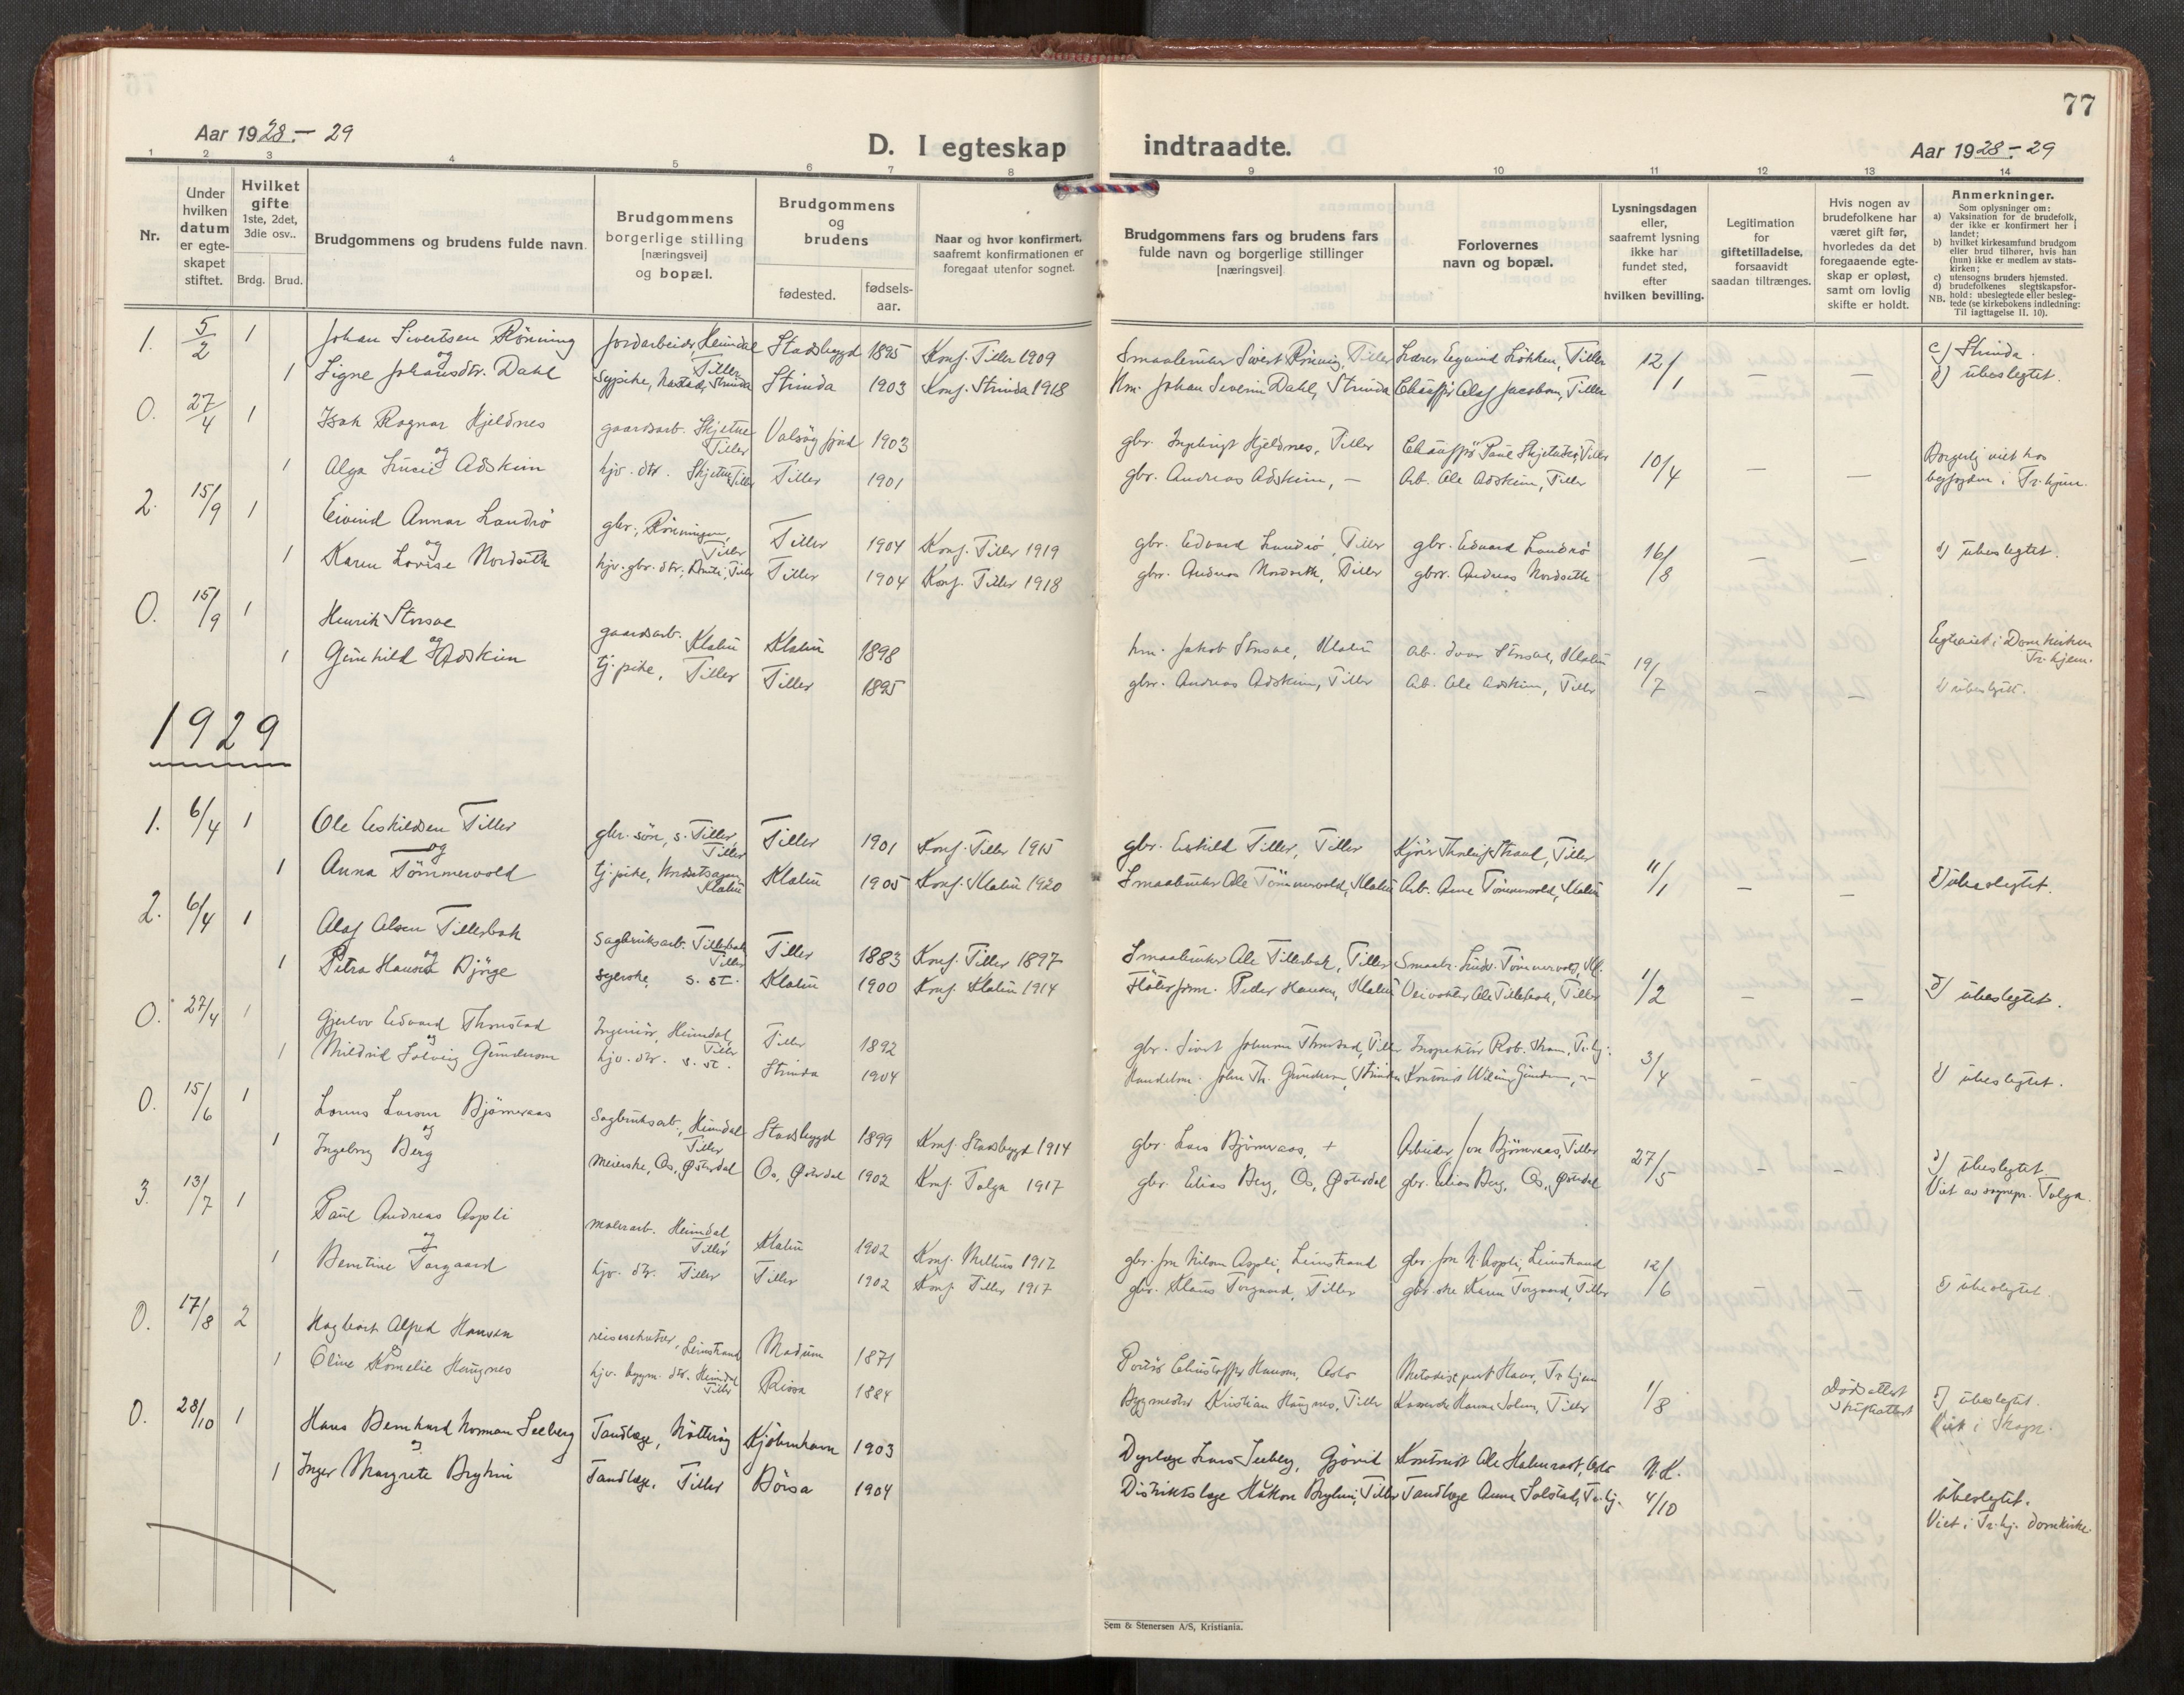 77
Aar 1928.- 29
D. I egteskap indtraadte.
Aar 1928.- 29
1 2 3 4 5 6 7 8 9 10 11 12 13 14
Nr.
Under hvilken datum er egte-skapet stiftet.
Hvilket gifte 1ste, 2det, 3die osv..
Brdg. Brud.
Brudgommens og brudens fulde navn.
Brudgommens borgerlige stilling [næringsvei] og bopæl.
Brudgommens og brudens
fødested.
fødsels-aar.
Naar og hvor konfirmert, saafremt konfirmationen er foregaat utenfor sognet.
Brudgommens fars og brudens fars fulde navn og borgerlige stillinger [næringsvei]
Forlovernes navn og bopæl.
Lysningsdagen eller, saafremt lysning ikke har fundet sted, efter hvilken bevilling.
Legitimation for giftetilladelse, forsaavidt saadan tiltrænges.
Hvis nogen av brudefolkene har været gift før, hvorledes da det foregaaende egte-skap er opløst, samt om lovlig skifte er holdt.
Anmerkninger.
Som oplysninger om:
a) Vaksination for de brudefolk, der ikke er konfirmert her i landet;
b) hvilket kirkesamfund brudgom eller brud tilhører, hvis han (hun) ikke er medlem av stats-kirken;
c) utensogns bruders hjemsted.
d) brudefolkenes slegtskapsfor-hold: ubeslegtede eller besleg-tede (se kirkebokens indledning: Til iagttagelse II. 10).
NB.
1. 5/2 1 Johan Sivertsen Rönning Jordarbeider, Heimdal Tiller Stadsbygd 1895 Konf. Tiller 1909 Smaabruker Sivert Rönning, Tiller Lærer Eyvind Lökken, Tiller 12/1 — — c) Strinda.
og
1 Signe Johansdtr. Dahl Sypike, Strinda Strinda 1903 Konf. Strinda 1918 Hm. Johan Severin Dahl, Strinda Chauffør Olaf Jacobsen, Tiller d) ubeslegtet.
0. 27/4 1 Isak Ragnar Hjeldnes gaardsarb. Skjetne Tiller Valsöyfjord 1903 gbr. Ingebrigt Hjeldnes, Tiller Chauffør Paul Tiller 10/4 — — Borgerlig viet hos
og
1 Alga Lucie Adskim hjv. dtr. Skjetne Tiller Tiller 1901 gbr. Andreas Adskim, — Arb. Ole Adskim, Tiller byfogden i Tr.hjem.
2. 15/9 1 Eivind Annar Landrö gbr., Rönningen, Tiller Tiller 1904 Konf. Tiller 1919 gbr. Edvard Landrö, Tiller gbr. Edvard Landrö 16/8 — — d) ubeslegtet.
og
1 Karen Lovise Nordseth hjv. gbr. dtr., Tiller Tiller 1904 Konf. Tiller 1918 gbr. Andreas Nordseth, Tiller gbr. Andreas Nordseth
0. 15/9 1 Henrik Storsve gaardsarb. Klæbu Klæbu 1898 hm. Jakob Storsve, Klæbu arb. Ivar Storsve, Klæbu 19/7 — — Egteviet i Domkirken Tr.hjem.
og
1 Gunhild Adskim tj. pike, Tiller Tiller 1895 gbr. Andreas Adskim, Tiller Arb. Ole Adskim, Tiller d) ubeslegtet.
1929
1. 6/4 1 Ole Eskildsen Tiller gbr. sön, s. Tiller, Tiller Tiller 1901 Konf. Tiller 1915 gbr. Eskild Tiller, Tiller Kjörer Strand, Tiller 11/1 — — d) ubeslegtet.
og
1 Anna Tömmervold tj. pike, Klæbu Klæbu 1905 Konf. Klæbu 1920 Smaabruker Ole Tömmervold, Klæbu Arb. Arne Tömmervold, Klæbu
2. 6/4 1 Olaf Olsen Tillerbak Sagbruksarb. Tillerbak Tiller Tiller 1883 Konf. Tiller 1897 Smaabruker Ole Tillerbak, Tiller Smaabr. Tömmervold, Kl. 1/2 — — d) ubeslegtet.
og
1 Petra Hansen Björge syerske, s. st. Klæbu 1900 Konf. Klæbu 1914 Flöterform. Peder Hansen, Klæbu Veivokter Ole Tillerbak, Tiller
0. 27/4 1 Gjerlov Edvard Thonstad Ingeniör, Heimdal, Tiller Tiller 1892 gbr. Sivert Johnsen Thonstad, Tiller Inspektör Rob. Tr.hj. 3/4 — — d) ubeslegtet.
og
1 Mildrid Solveig Gundersen hjv. dtr. s. st. Strinda 1904 Handelsm. John Th. Gundersen, Strinda Kontorist Gundersen, —
0. 15/6 1 Lorens Larsen Björneraas Sagbruksarb., Heimdal Tiller Stadsbygd 1899 Konf. Stadsbygd 1914 gbr. Lars Björneraas, + Arbeider Jon Björneraas, Tiller 27/5 — — d) ubeslegtet.
og
1 Ingeborg Berg Meierske, Os, Østerdal Os, Østerdal 1902 Konf. Tolga 1917 gbr. Elias Berg, Os, Østerdal gbr. Elias Berg, Os, Østerdal Viet av sognepr. Tolga.
3. 13/7 1 Paul Andreas Aspli Malerarb. Heimdal Tiller Klæbu 1902 Konf. Melhus 1917 gbr. Jon Nilsen Aspli, Leinstrand gbr. Jon N. Aspli, Leinstrand 12/6 — — d) ubeslegtet.
og
1 Berntine Torgaard hjv. dtr. Tiller Tiller 1902 Konf. Tiller 1917 gbr. Klaus Torgaard, Tiller gbr.ske Karen Torgaard, Tiller
0. 17/8 2 Hagbart Alfred Hansen reisesekretær, Leinstrand Modum 1871 Christoffer Hansen, Oslo Metodistprest Haave, Tr.hjem 1/8 Dödsattest Skifteattest d) ubeslegtet.
1 Oline Kornelie Haugnes hjv. bygm. dtr. Heimdal Tiller Rissa 1884 Bygmester Kristian Haugnes, Tiller Hanna Solum, Tiller Viet i
0. 23/10 1 Hans Bernhard Norman Seeberg Tandlæge, Nötteröy Kjöbenhavn 1903 Dyrlæge Lars Seeberg, Gjövik Kontorist Ole Oslo N.K. ubeslegtet.
og
1 Inger Margrete Bryhni Tandlæge, Tiller Börsa 1904 Distriktslæge Håkon Bryhni, Tiller Tandlæge Anna Solstad, Tr.hj. 4/10 Viet i Tr.hj. Domkirke.
Sem & Stenersen A/S, Kristiania.